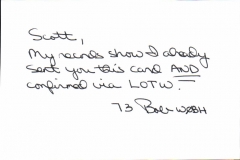 Scott,
My records show I already
sent you this card AND
confirmed via LOTW.
73 Bob W9BH